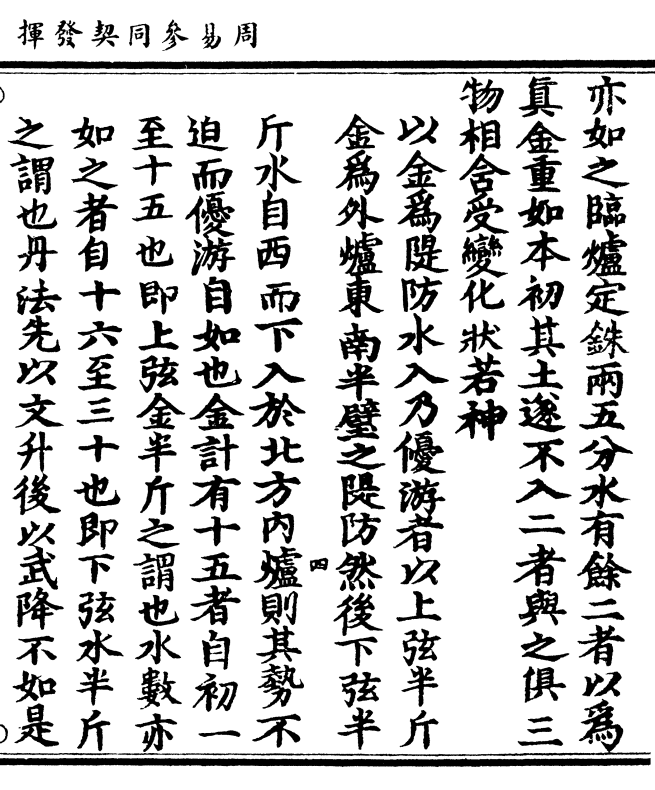 周易參同契發揮
亦如之臨爐定銖兩五分水有餘二者以爲
眞金重如本初其土遂不入二者與之俱三
物相含受變化狀若神
以金爲隄防水入乃優游者以上弦半斤
金爲外爐東南半壁之隄防然後下弦半
四
斤水自西而下入於北方內爐則其勢不
迫而優游自如也金計有十五者自初一
至十五也即上弦金半斤之謂也水數亦
如之者自十六至三十也即下弦水半斤
之謂也丹法先以文升後以武降不如是